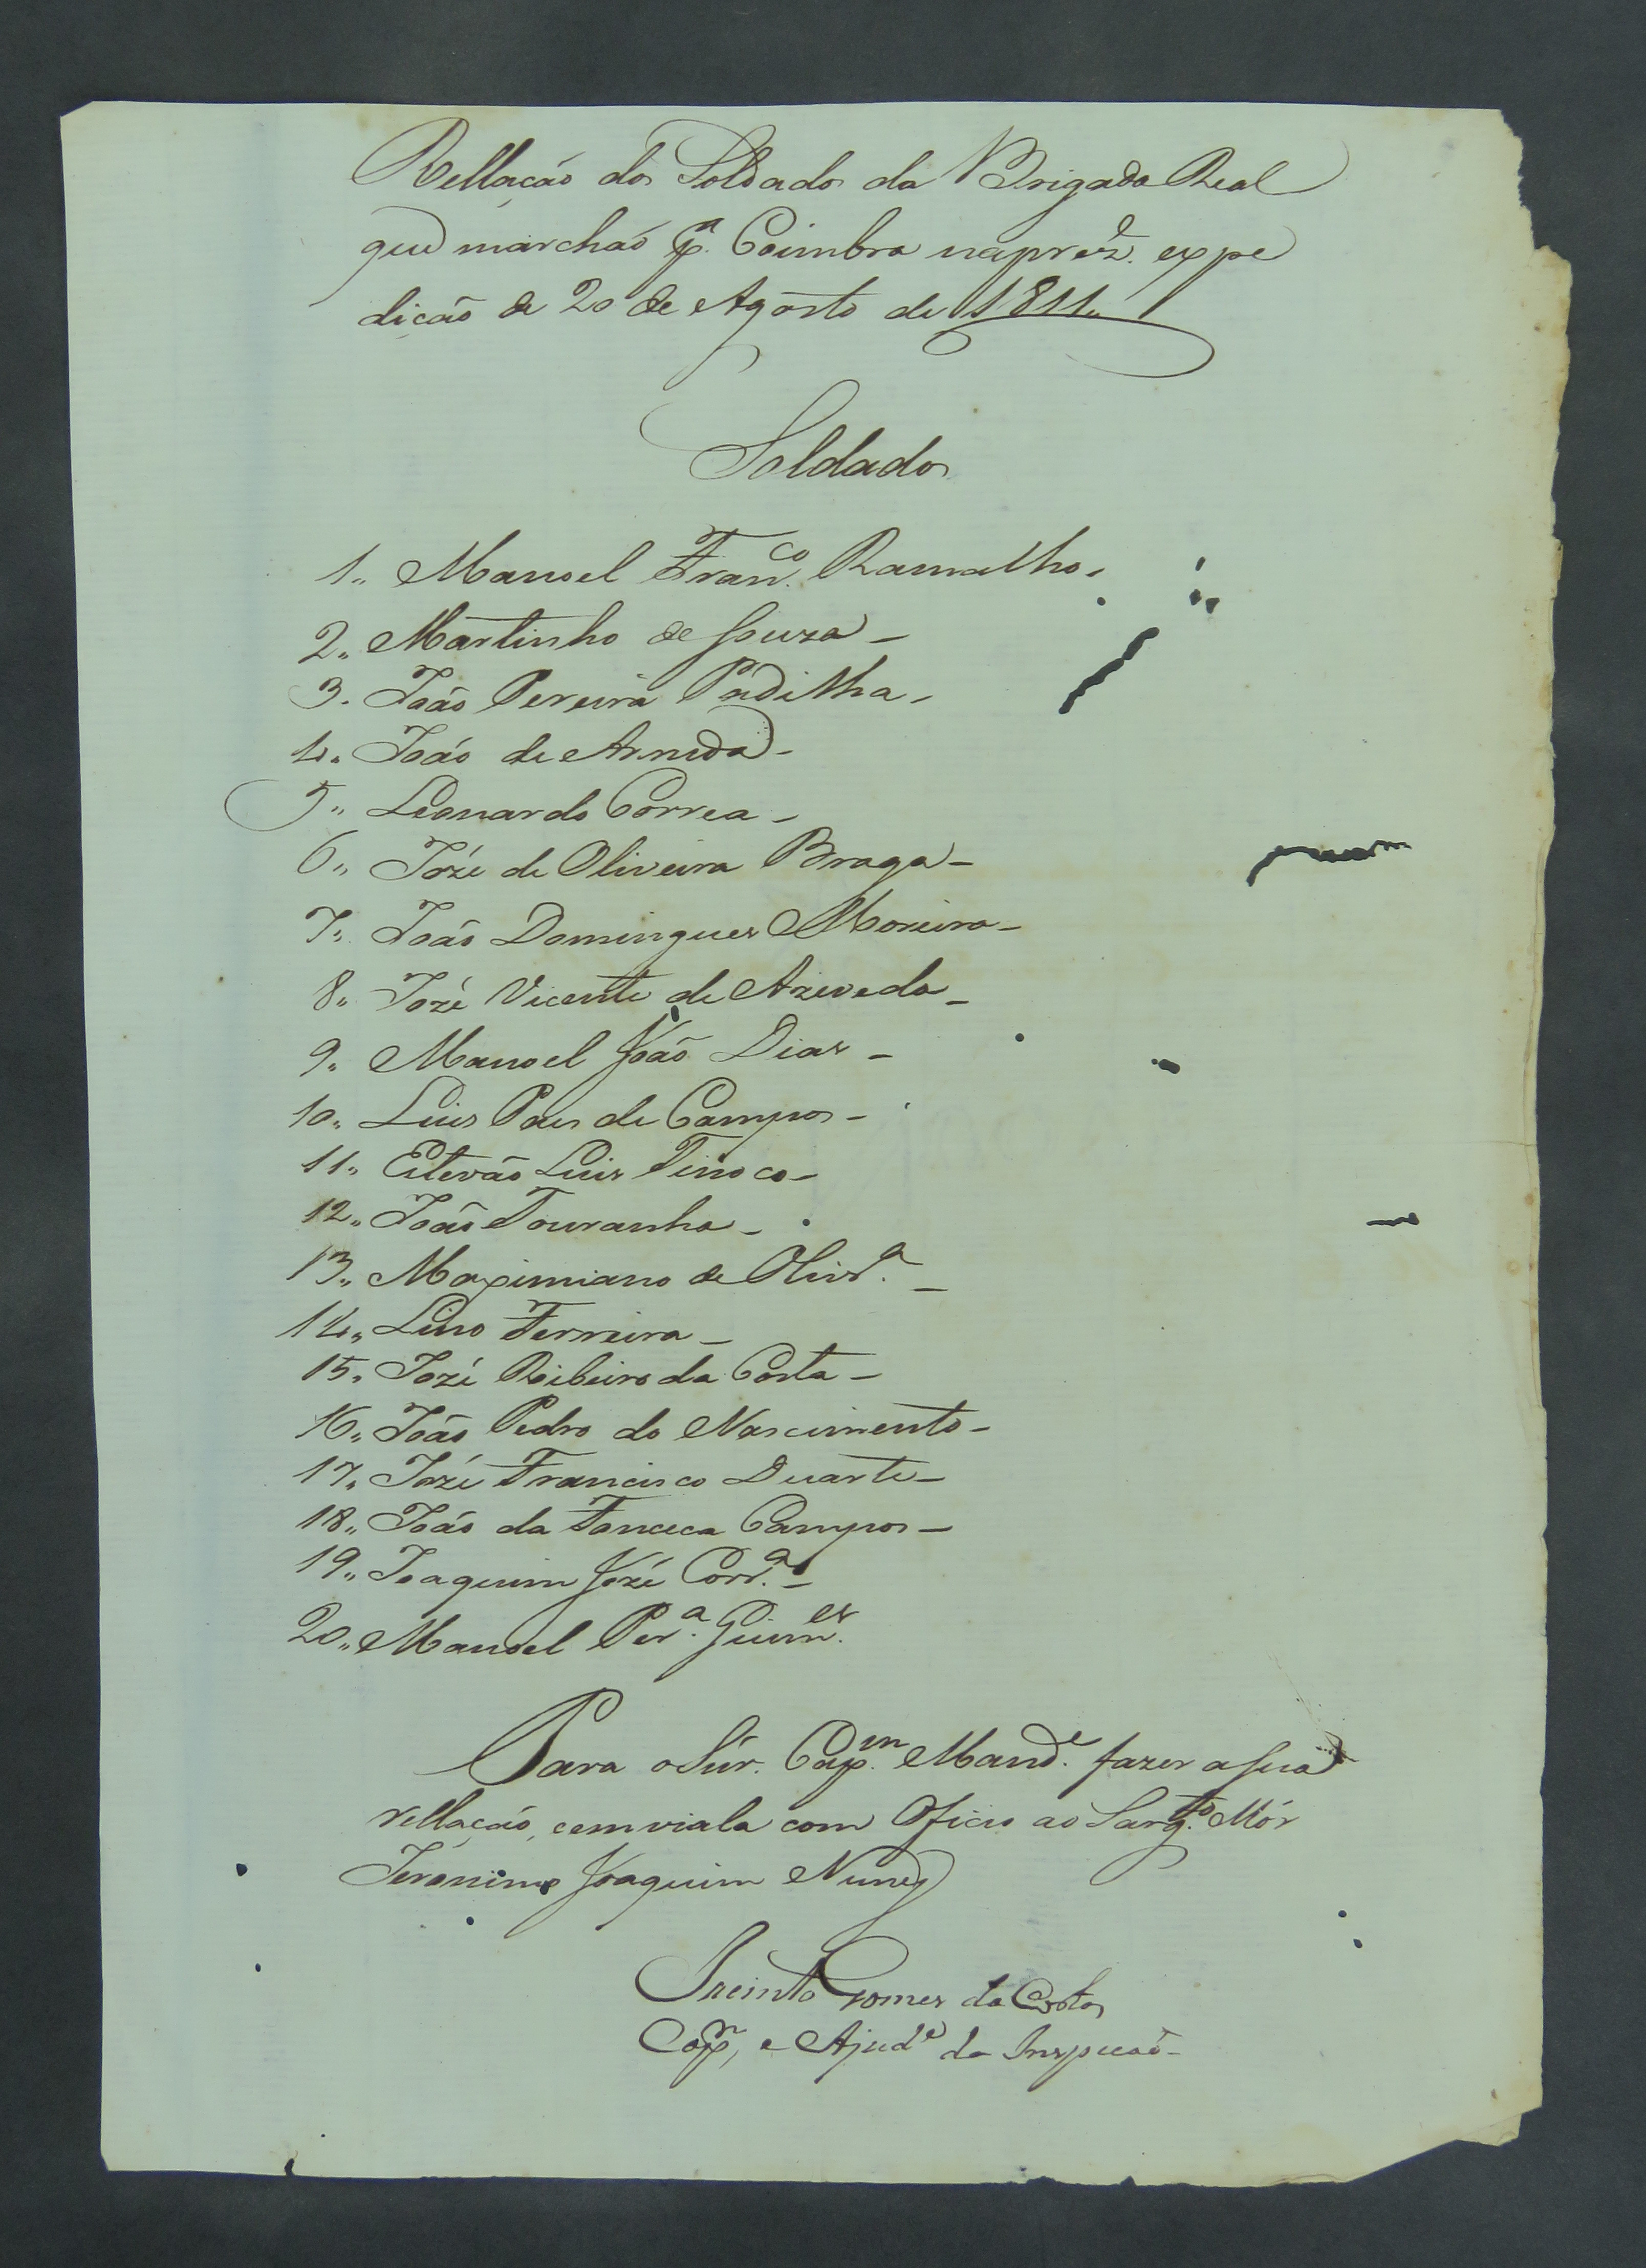 Rellação dos Soldados da Brigada Real
que marchaõ pª. Coimbra naprezᵉ. expe
dição de 20 de Agosto de 1811„
Soldados
1„ Manoel Franᶜᵒ. Ramalho„
2„ Martinho de Souza –
3. João Pereira Padilha„
4„ João de Arruda –
5„ Leonardo Correa –
6„ Jozé de Oliveira Braga –
7„ João Domingues Moreira –
8„ Jozé Vicente de Azevedo –
9„ Manoel João Dias –
10„ Luis Paes de Campos –
11„ Estevão Luis Tinoco –
12„ João Touranho –
13„ Maximiano de Olivrª. –
14„ Lino Ferreira –
15„ Jozé Ribeiro da Costa –
16„ João Pedro do Nascimento –
17„ Jozé Francisco Duarte –
18„ João da Fonceca Campos –
19„ Joaquim Jozé Corrª. –
20„ Manoel Perª. Guimᵉˢ.
Para o Sñr. Capᵐ. Mandᵉ. fazer a sua
rellação, eemviala com Oficio ao Sargᵗᵒ. Mór
Jeronimo Joaquim Nunes
Jacinto Gomes da Costa
Capᵐ, e Ajudᵉ da Inspecaõ –